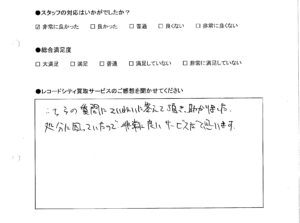 ●スタッフの対応はいかがでしたか？
☑ 非常に良かった □ 良かった □ 普通 □ 良くない □ 非常に良くない
●総合満足度
□ 大満足 □ 満足 □ 普通 □ 満足していない □ 非常に満足していない
●レコードシティ買取サービスのご感想を聞かせてください
こちらの質問にていねいに答えて頂き、助かりました。
処分に困っていたので 非常に良いサービスだと思います。